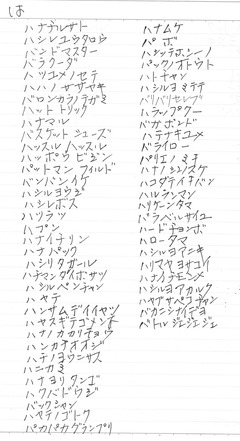 は
ハナデルザト
ハシレユウタロウ
バンドマスター
バラクーダ
ハツユメノセテ
ハハノササヤキ
バロンカラノテガミ
ハットトリック
ハナマル
バスケットシューズ
ハッスルハッスル
ハッポウビジン
パットマンフィルド
バンバンイケ
ハシルヨウジ
ハシレボス
ハツラツ
ハプン
ハナイチリン
ハナパック
ハシリタガール
ハチマンダイボサツ
ハシルペンチャン
ハヤテ
ハンサムデイイヤツ
ハヤスギテゴメンネ
ハナノカカリチョウ
ハンカチオオジ
ハチノヨウニササ
ハニカミ
ハナヨリタンゴ
ハクバドウジ
バックシャン
ハヤテノゴトク
パカパカグランプリ
ハナムケ
パボ
ハシッテホシーノ
バックノオトウト
ハトチャン
ハシルヨミテテ
バリバリセレブ
ハラップクー
バガボンド
ハテナキユメ
バライロー
パリエノミチ
ハナノシンノスケ
ハコダテイチバン
ハルランマン
ハリケーンタマ
パラベルサイユ
ハードチョンボ
ハロータマ
ハシルヨアニキ
ハリマヤヨサコイ
ハナイチモンメ
ハシルヨアカルク
ハヤブサペコチャン
バカニシナイデヨ
ベトルジェジェジェ